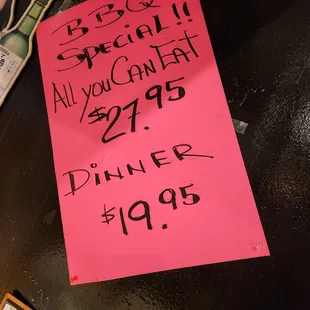 BBQ
SPECIAL!!
All you Can EAt
$27.95
DINNER
$19.95